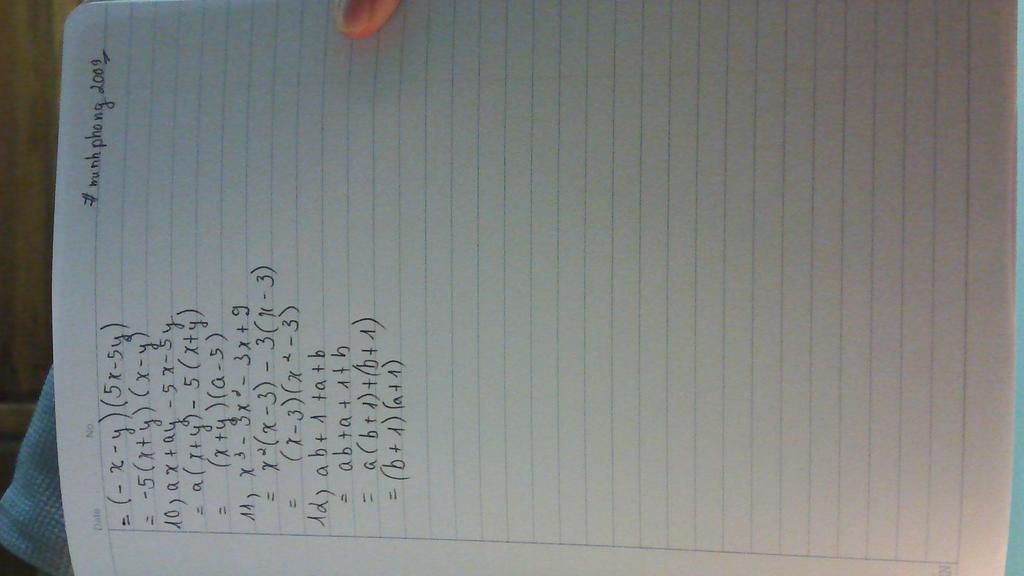 # minhphong.2009
Date
No.
= (-x-y)(5x-5y)
= -5(x+y)(x-y)
10) ax+ay-5x-5y
= a(x+y)-5(x+y)
= (x+y)(a-5)
11) x³-3x²-3x+9
= x²(x-3)-3(x-3)
= (x-3)(x²-3)
12) ab+1+a+b
= ab+a+1+b
= a(b+1)+(b+1)
= (b+1)(a+1)